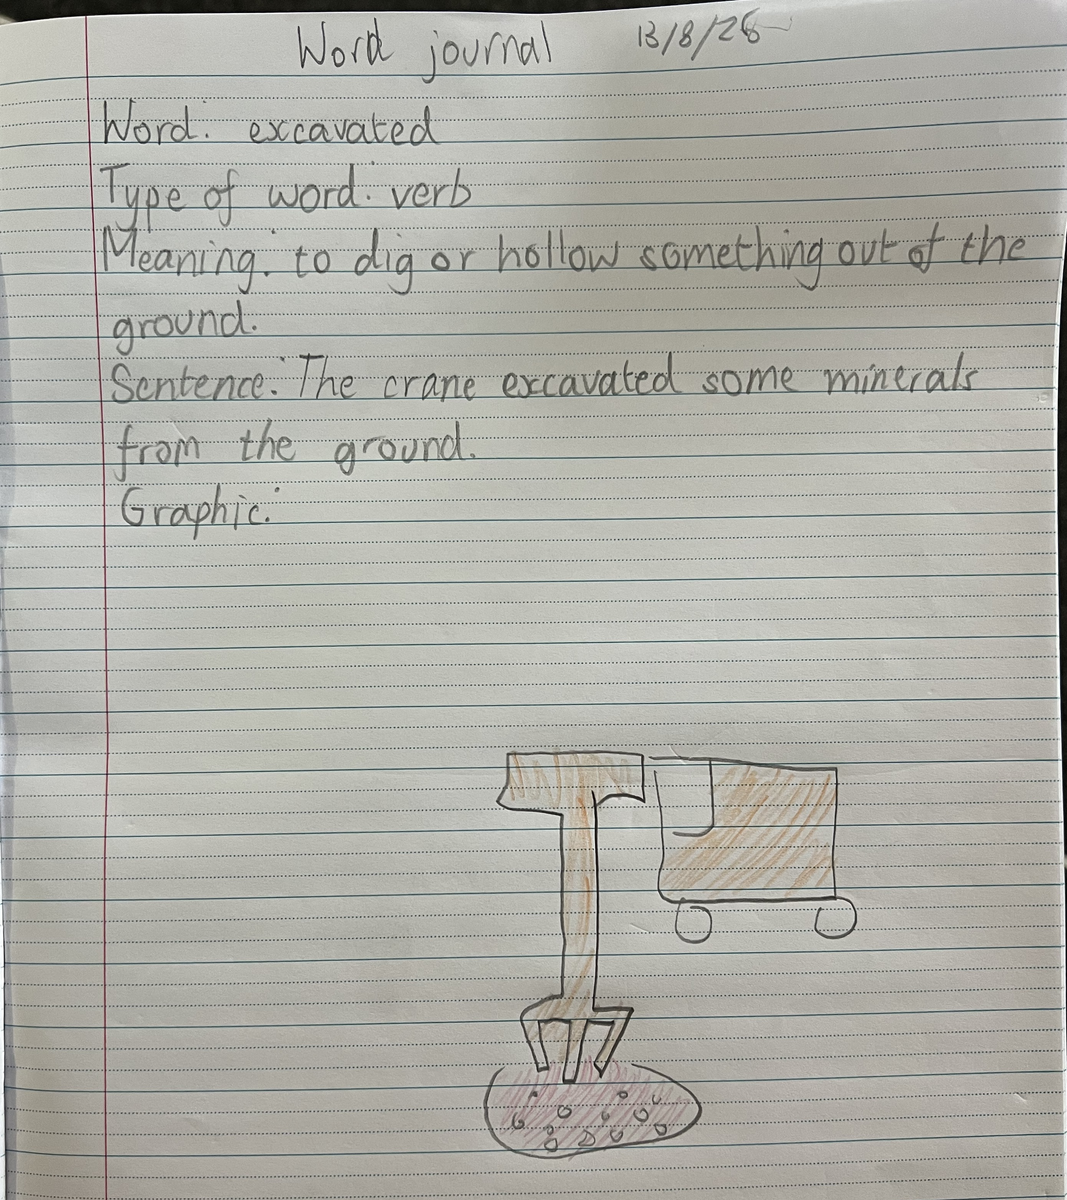 Word journal 13/8/26
Word: excavated
Type of word: verb
Meaning: to dig or hollow something out of the
ground.
Sentence: The crane excavated some minerals
from the ground.
Graphic: